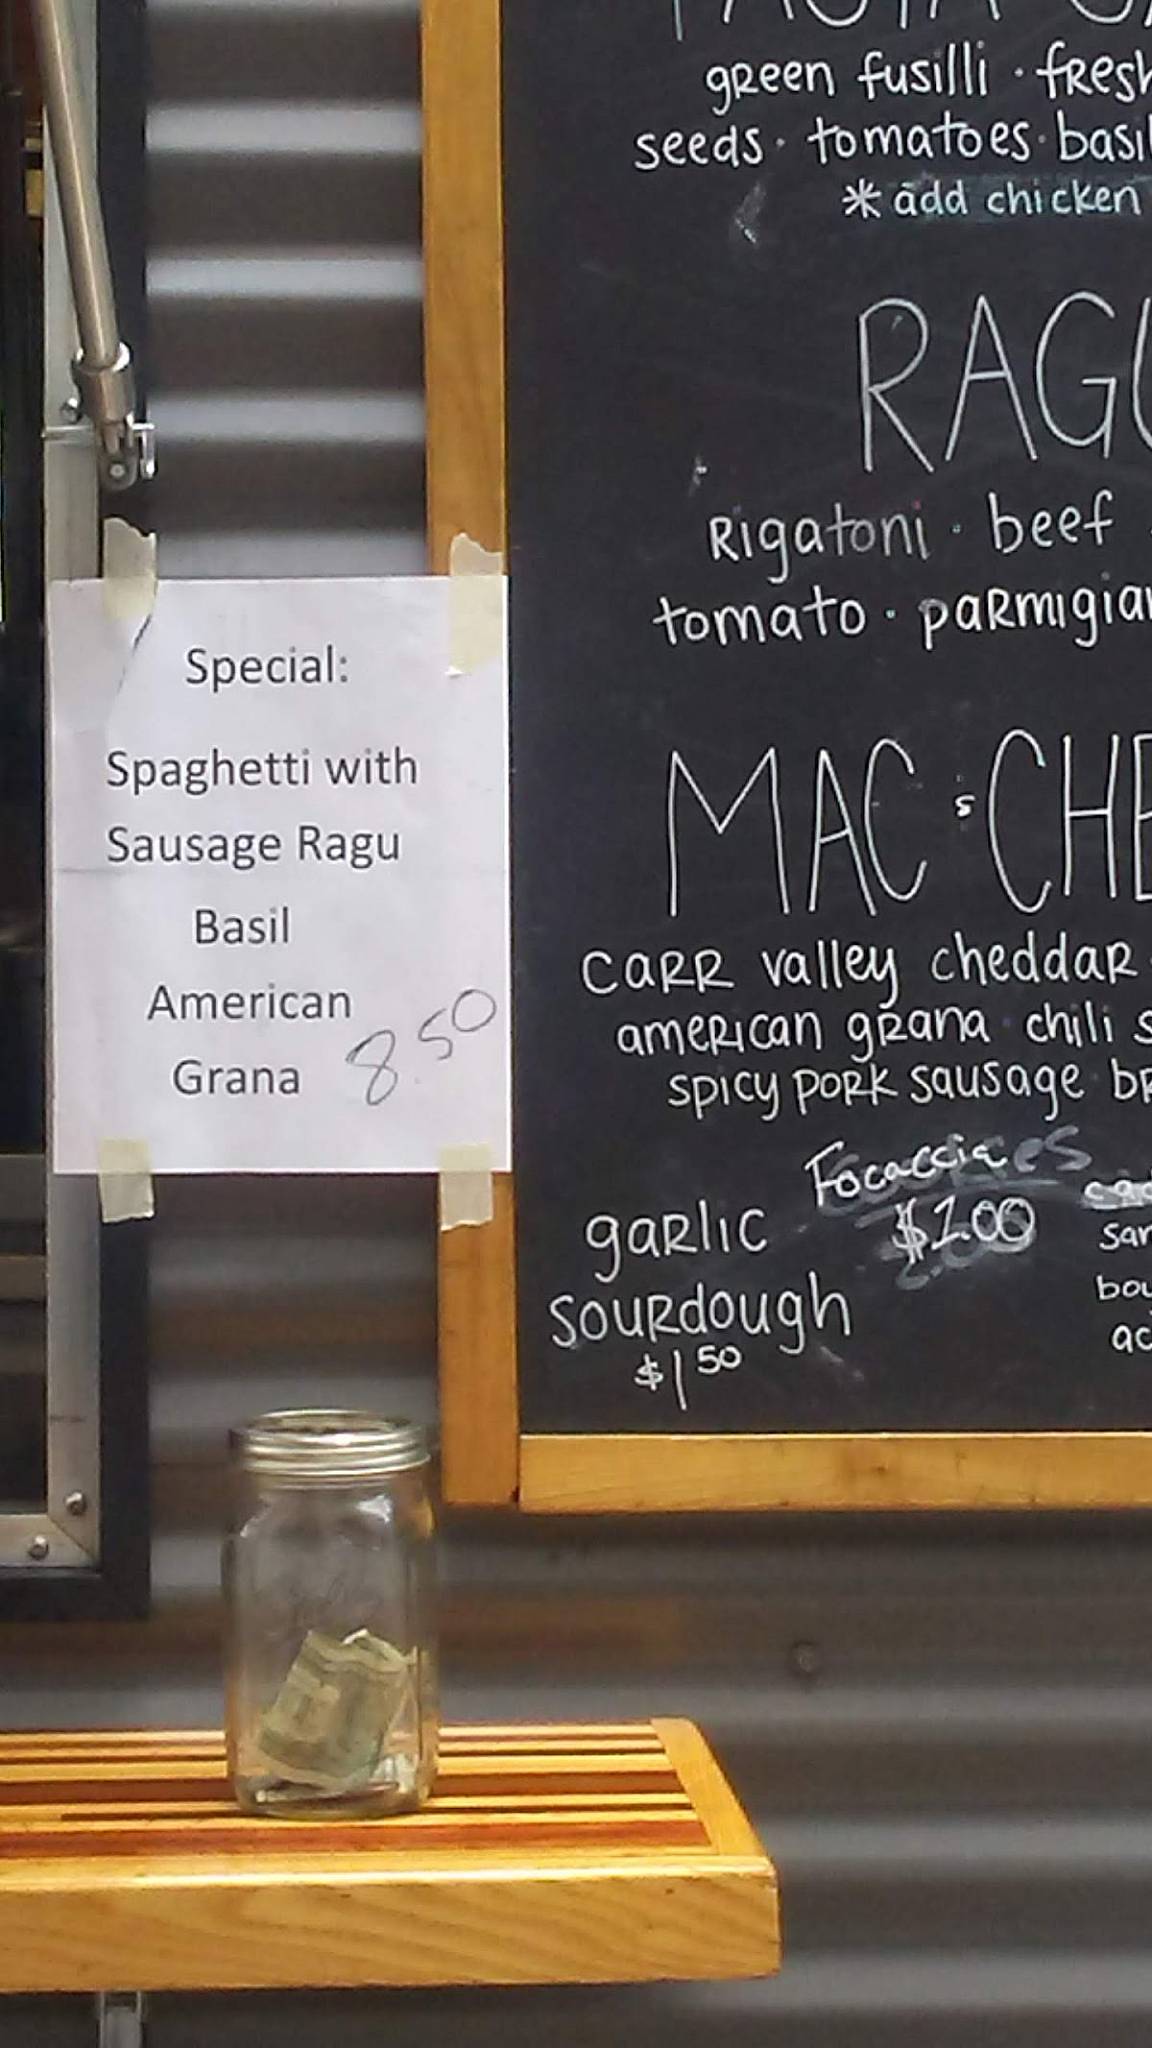 Special:
Spaghetti with
Sausage Ragu
Basil
American
Grana
8.50
green fusilli · fresh
seeds · tomatoes · basil
* add chicken
RAGU
Rigatoni · beef
tomato · parmigian
MAC & CHE
carr valley cheddar ·
american grana · chili s
spicy pork sausage · br
Focaccia
$1.00
garlic
sourdough
$1 50
sar
bou
ac